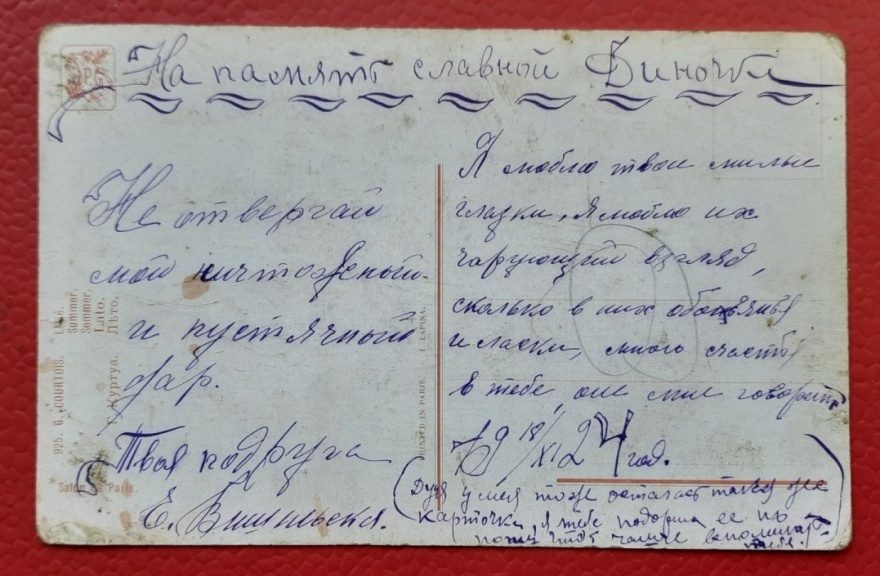 На память славной Диночки
Не отвергай
мой ничтожный
и пустячный
дар.
Твоя подруга
Е.
Я люблю твои милые
глазки, я люблю их
чарующий взгляд,
сколько в них обояния
и ласки, много счастья
в тебе, они мне говорят
19 18/XI 24 год.
(Дуся у меня тоже осталась такая же
карточка, я тебе подарила ее
чаще вспоминать
тебя.)
925. G. COURTOIS.
Г. Куртуа.
Summer.
Sommer.
Lato.
Лѣто.
Salon Paris.
PRINTED IN PARIS. I. LAPINA.